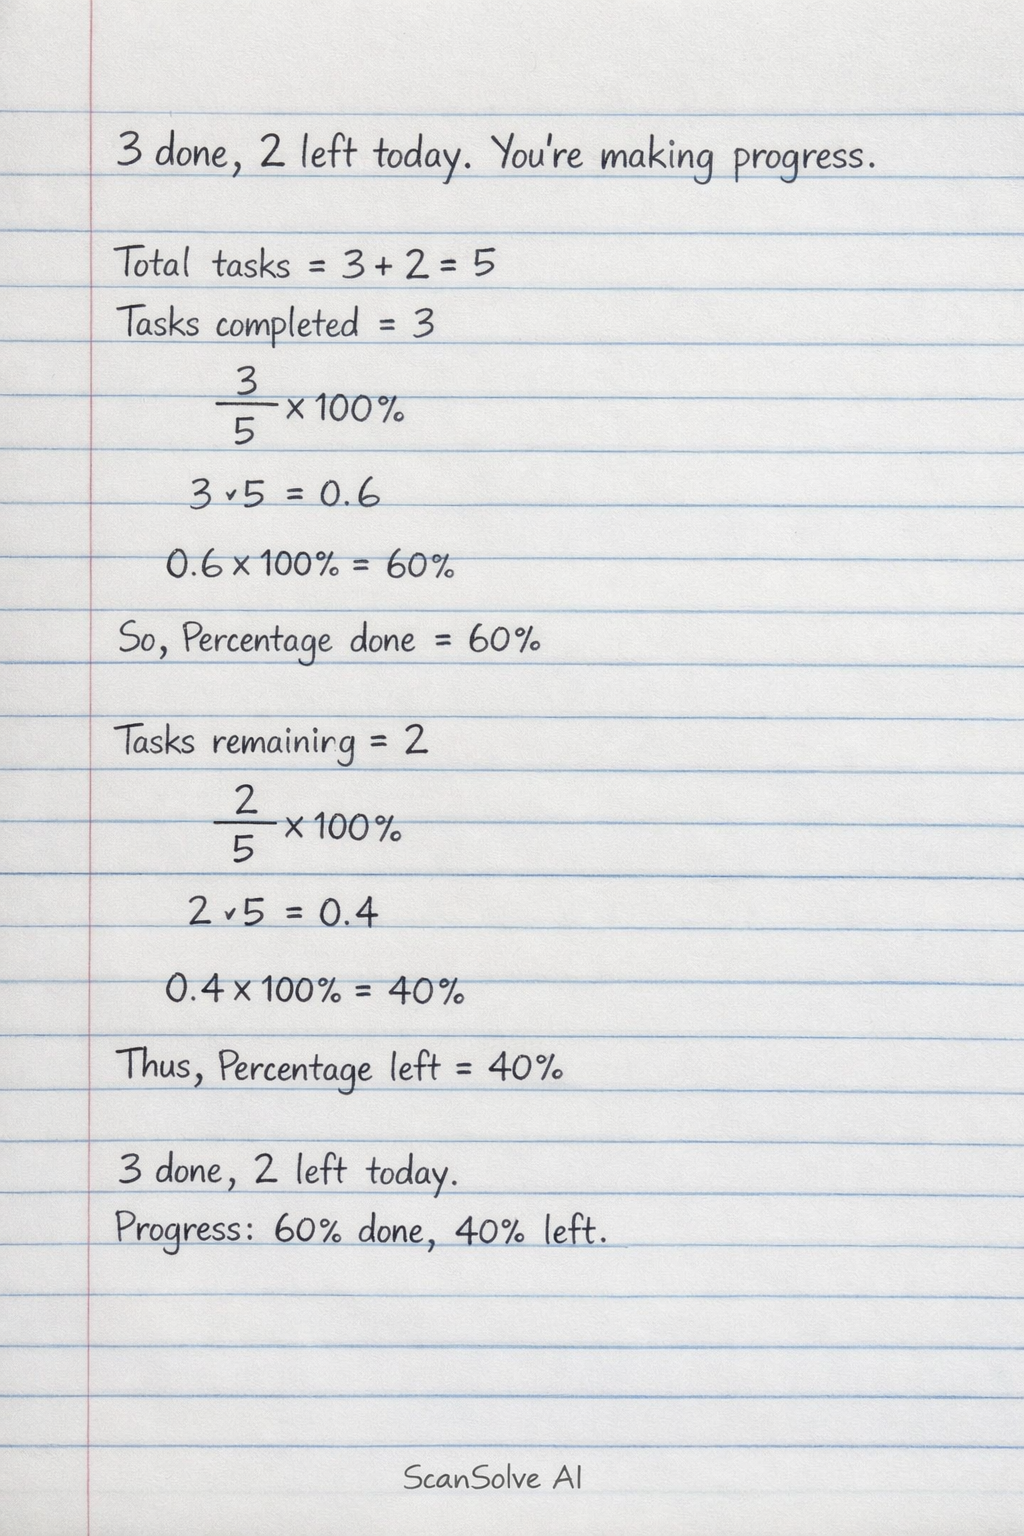 3 done, 2 left today. You're making progress.
Total tasks = 3 + 2 = 5
Tasks completed = 3
3
5
× 100%
3 ˅ 5 = 0.6
0.6 × 100% = 60%
So, Percentage done = 60%
Tasks remaining = 2
2
5
× 100%
2 ˅ 5 = 0.4
0.4 × 100% = 40%
Thus, Percentage left = 40%
3 done, 2 left today.
Progress: 60% done, 40% left.
ScanSolve AI